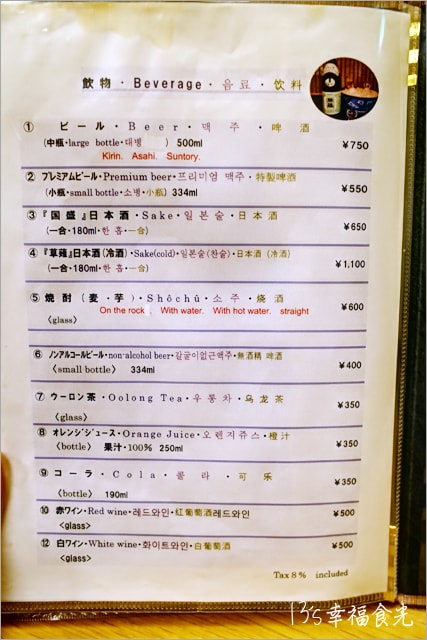 飲物・Beverage・음료・饮料
① ビール・Beer・맥주・啤酒
(中瓶・large bottle・대병 ) 500ml ¥750
Kirin. Asahi. Suntory.
② プレミアムビール・Premium beer・프리미엄 맥주・特製啤酒
(小瓶・small bottle・소병・小瓶) 334ml ¥550
③『国盛』日本酒・Sake・일본술・日本酒
(一合・180ml・한 홉・一合) ¥650
④『草薙』日本酒(冷酒)・Sake(cold)・일본술(찬술)・日本酒 (冷酒)
(一合・180ml・한 홉・一合) ¥1,100
⑤ 焼酎 (麦・芋)・Shôchû・소주・烧酒 ¥600
On the rock 、 With water. With hot water. straight
〈glass〉
⑥ ノンアルコールビール・non-alcohol beer・갈굴이없근액주・無酒精 啤酒
〈small bottle〉 334ml ¥400
⑦ ウーロン茶・Oolong Tea・우롱차・乌龙茶 ¥350
〈glass〉
⑧ オレンジジュース・Orange Juice・오렌지쥬스・橙汁
〈bottle〉 果汁・100% 250ml ¥350
⑨ コーラ・Cola・콜라・可乐 ¥350
〈bottle〉 190ml
⑩ 赤ワイン・Red wine・레드와인・紅葡萄酒레드와인 ¥500
<glass>
⑫ 白ワイン・White wine・화이트와인・白葡萄酒 ¥500
<glass>
Tax 8% included
13's幸福食光